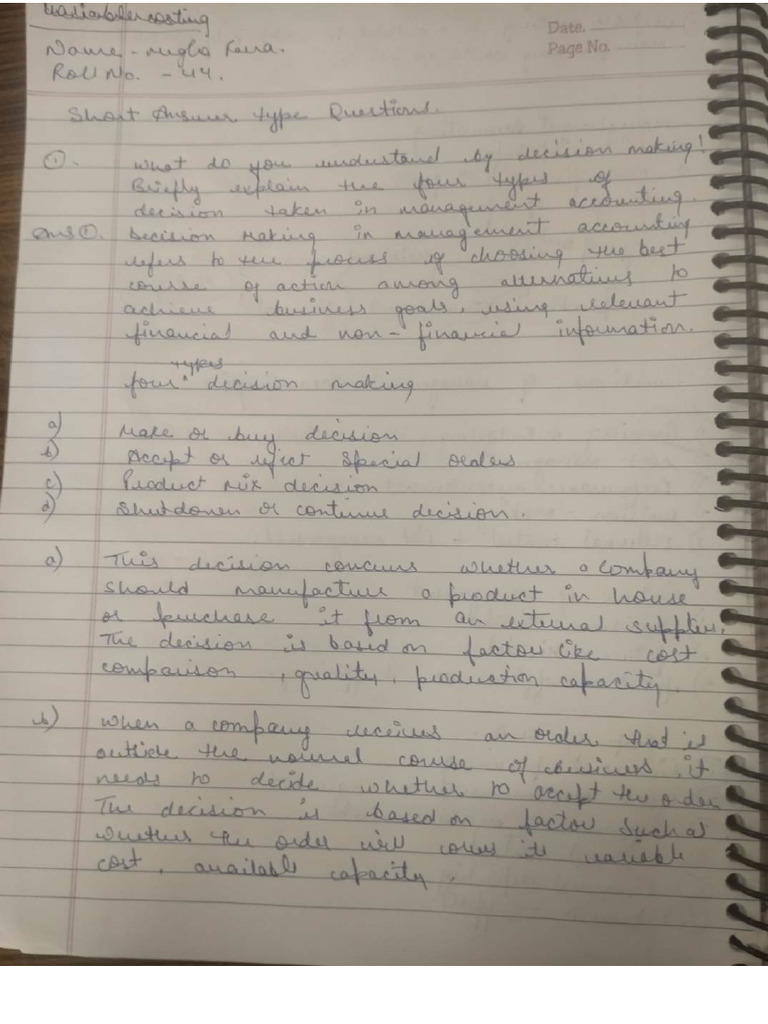 Variable costing
Date.
Name - Mugla Faira.
Page No.
Roll No. - 44.
Short Answer type Questions.
①. What do you understand by decision making!
Briefly explain the four types of
decision taken in management accounting.
Ans①. Decision Making in management accounting
refers to the process of choosing the best
course of action among alternatives to
achieve business goals, using relevant
financial and non-financial information.
four types decision making
a) Make or buy decision
b) Accept or reject special orders
c) Product mix decision
d) Shutdown or continue decision.
a) This decision concerns whether a company
should manufacture a product in house
or purchase it from an external supplier.
The decision is based on factor like cost
comparison, quality, production capacity.
b) When a company receives an order that is
outside the normal course of business, it
needs to decide whether to accept the order.
The decision is based on factor such as
whether the order will cover its variable
cost, available capacity.